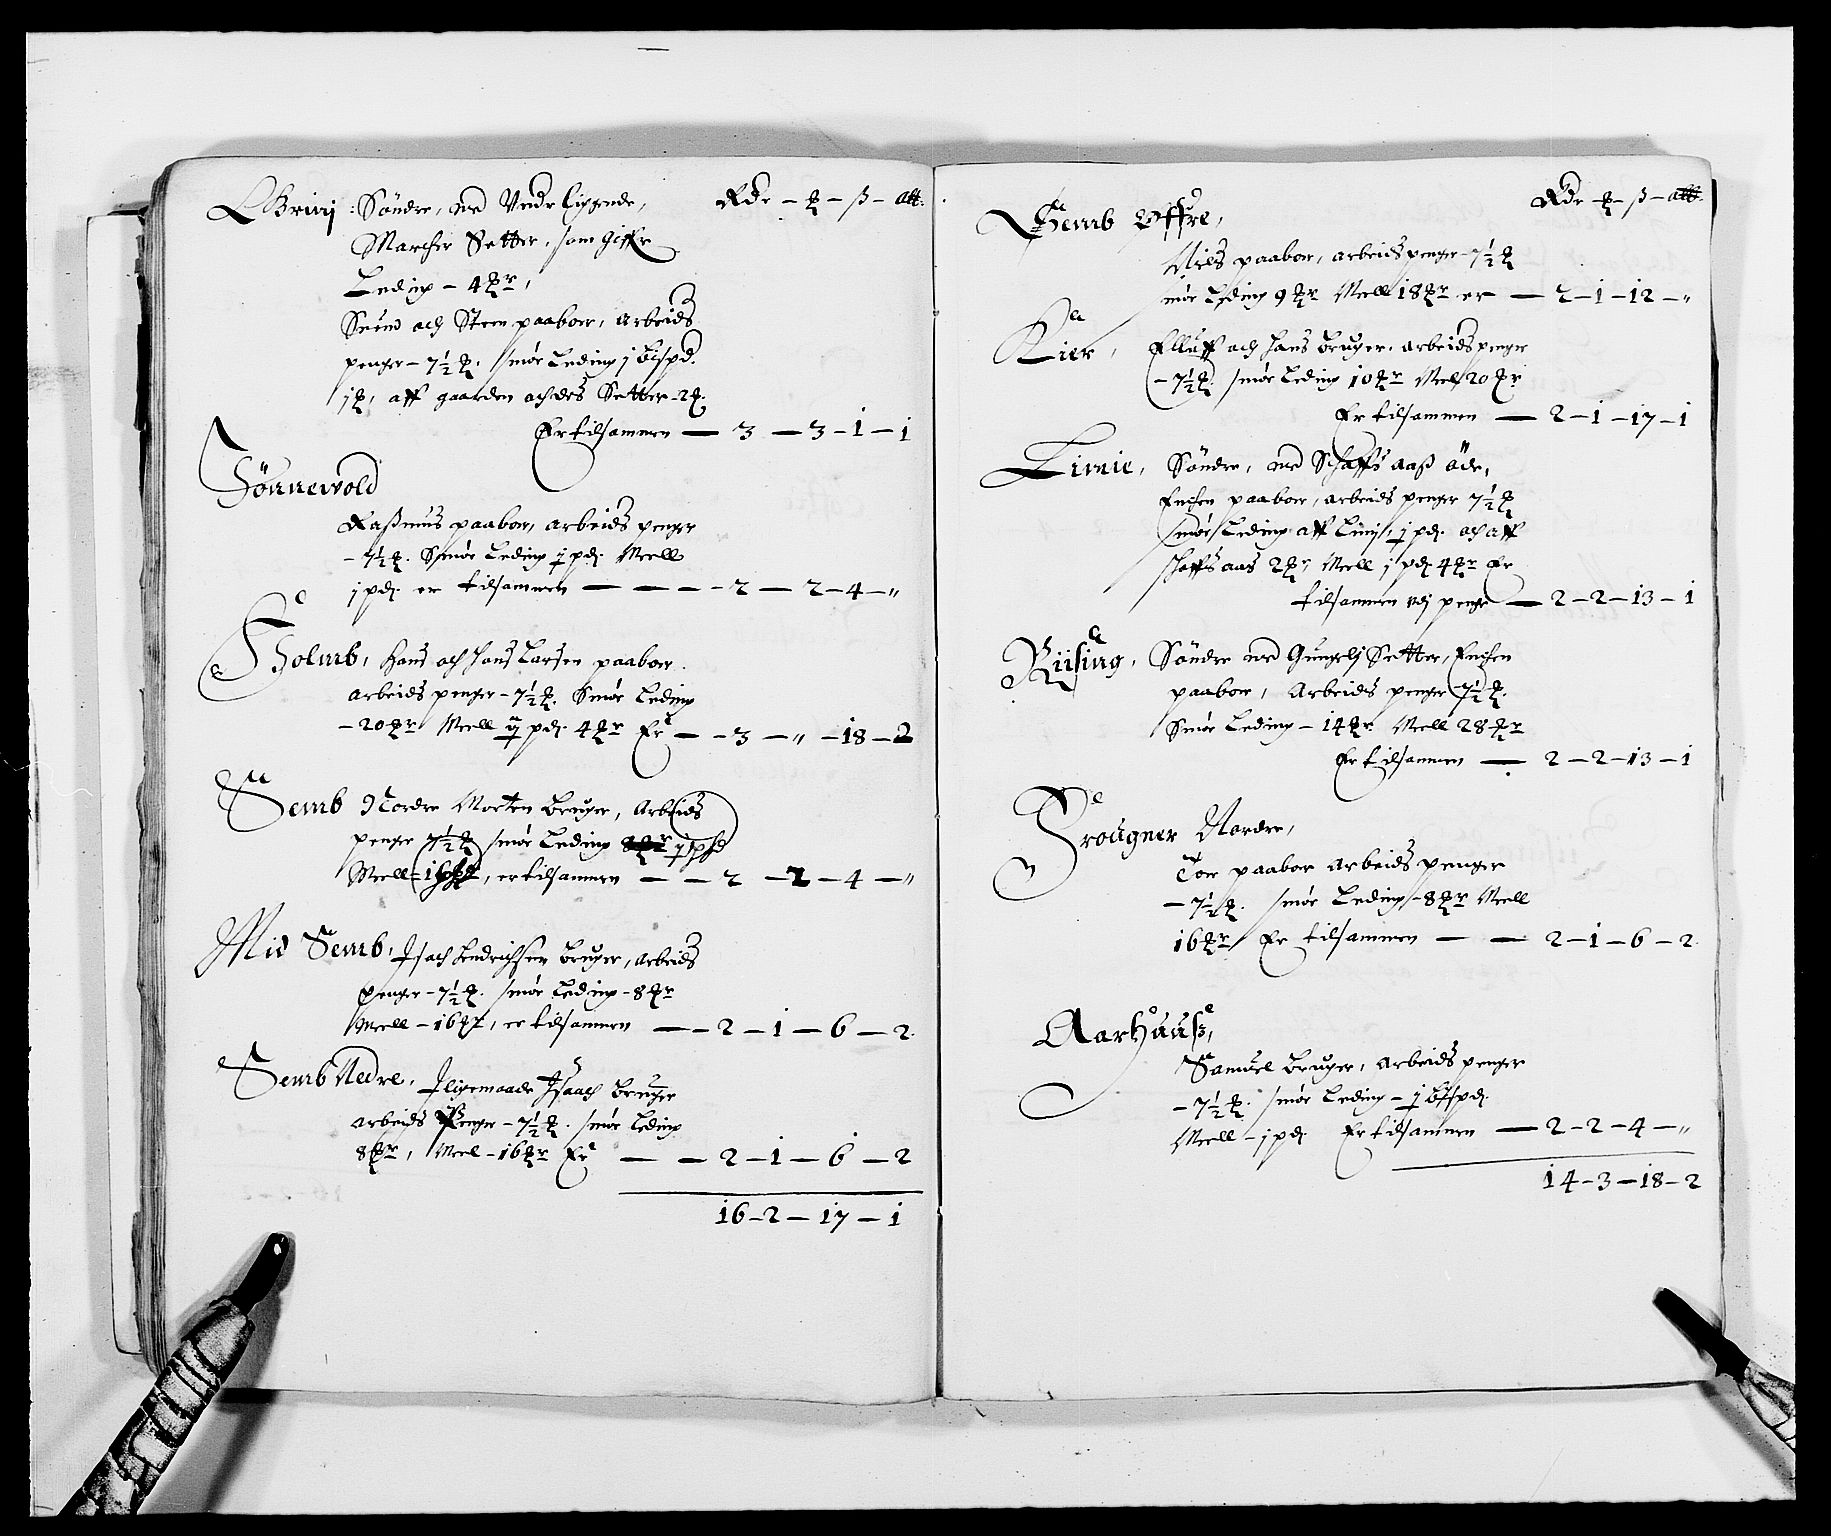 Brunj Søndre, med Underliggende, Rdr - ₰ - ß - alb.
Marcher Setter, som giffr
Leding - 4 ₰r,
Svend och Steen paaboer, Arbeids
penger - 7½ ₰. smør Leding j bispd.
j ₰, aff gaarden och des Setter - 2 ₰.
Er tilsammen — 3 — 3 - 1 - 1
Rasmus paaboer, Arbeids penger
- 7½ ₰. Smør Leding j pd. Meell
j pd. er tilsammen — — - - 2 — 2 - 4 - "
Holmb, Hans och Hans Larsen paaboer.
arbeids penger - 7½ ₰. Smør Leding
- 20 ₰r Meell ij pd. 4 ₰r Er — - 3 — " - 18 - 2
Semb Nordre Morten Bruger, Arbeids
penger 7½ ₰ smør Leding
Meell, er tilsammen — - 2 - 2 - 4 - "
Mid Semb, Isach Hendrichsen Bruger, Arbeids
penger - 7½ ₰. smør Leding - 8 ₰r
Meell - 16 ₰r, er tilsammen — - 2 - 1 - 6 - 2.
Semb Nedre, Iligemaade Isaach Bruger
arbeids Penger - 7½ ₰. smør Leding
8 ₰r, Meel - 16 ₰r Er — - 2 - 1 - 6 - 2
16 - 2 - 17 - 1
Rdr - ₰ - ß - alb.
Semb Øffre,
Niels paaboer, arbeids penger - 7½ ₰
smør Leding 9 ₰r Meell 18 ₰r er — 2 - 1 - 12 - "
Kier, Elluff och Hans Bruger, arbeids penger
- 7½ ₰. smør Leding 10 ₰r Meel 20 ₰r
Er tilsammen — 2 - 1 - 17 - 1
Søndre, med Schaffs aaß øde,
Enchen paaboer, arbeids penger 7½ ₰
smør Leding aff j pd. och aff
schaffs aas 2 ₰r, Meell j pd. 4 ₰r Er
tilsammen udj penge — 2 - 2 - 13 - 1
Riising, Søndre med Setter, Enchen
paaboer, Arbeids penger 7½ ₰.
Smør Leding - 14 ₰r. Meell 28 ₰r
Er tilsammen — 2 - 2 - 13 - 1
Trougner Nordre,
Tor paaboer arbeids penger
- 7½ ₰. smør Leding - 8 ₰r Meell
16 ₰r Er tilsammen — — 2 - 1 - 6 - 2.
Aarhuuß,
Samuel Bruger, Arbeids penger
- 7½ ₰. smør Leding - j bispd.
Meell - j pd. Er tilsammen — 2 - 2 - 4 - "
14 - 3 - 18 - 2